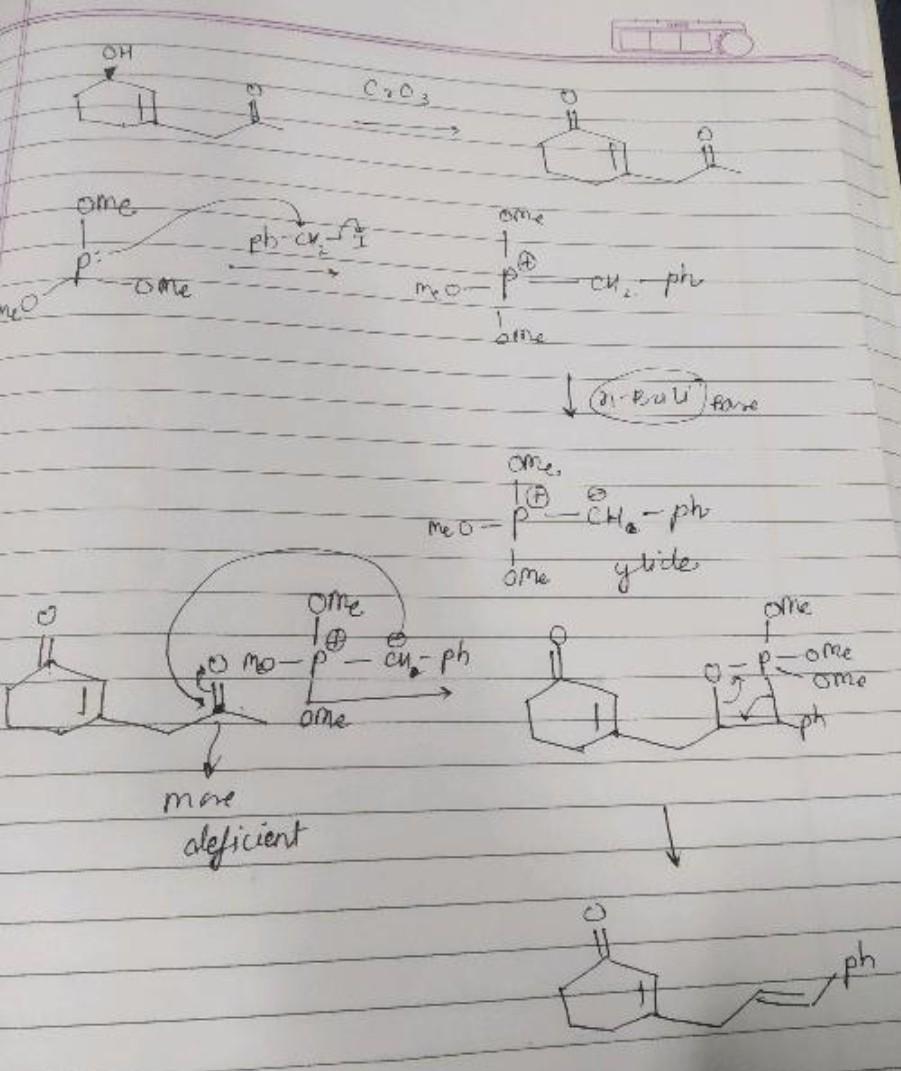 OH
O
O
O
CrO3
OMe
P:
MeO
OMe
Ph-CH2-I
OMe
MeO-P⊕-CH2-Ph
OMe
n-BuLi Base
OMe
MeO-P⊕-CH2⊖-Ph
OMe
ylide
O
O
OMe
MeO-P⊕-CH2⊖-Ph
OMe
more
deficient
O
OMe
O-P-OMe
OMe
Ph
O
Ph